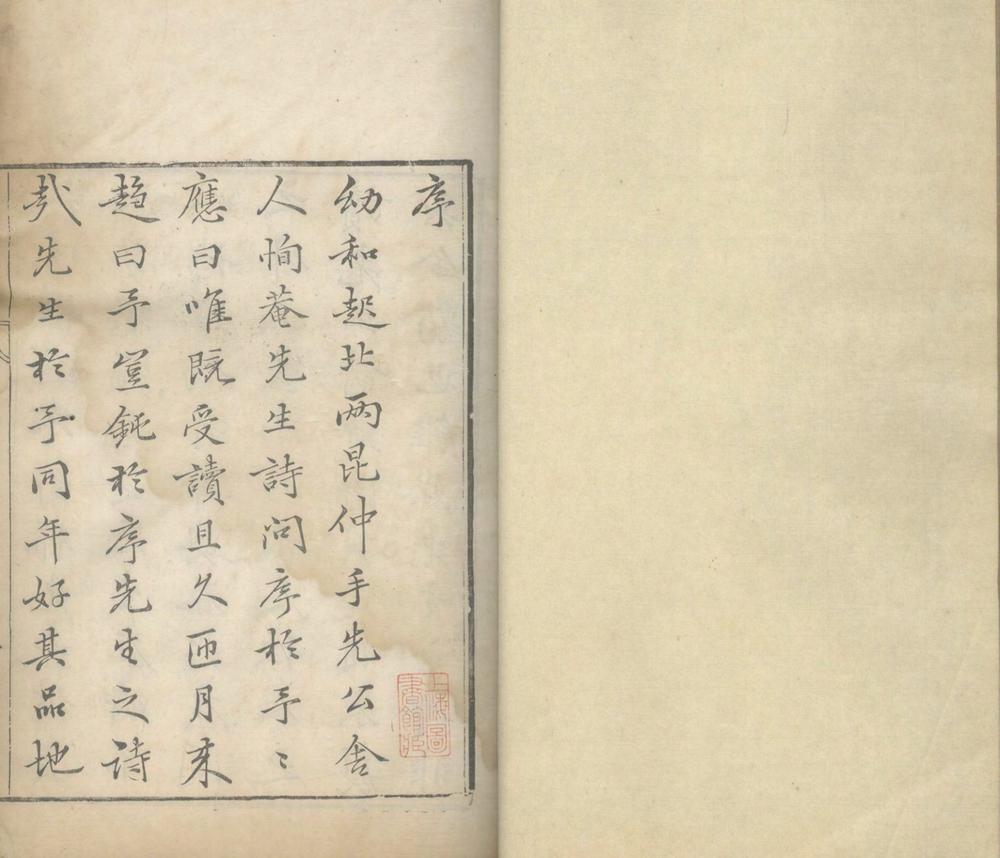 序
幼和起北两昆仲手先公舍
人恂菴先生詩问序於予〻
應曰唯既受讀且久匝月来
趋曰予豈鈍於序先生之詩
哉先生於予同年好其品地
上海圖
書館藏